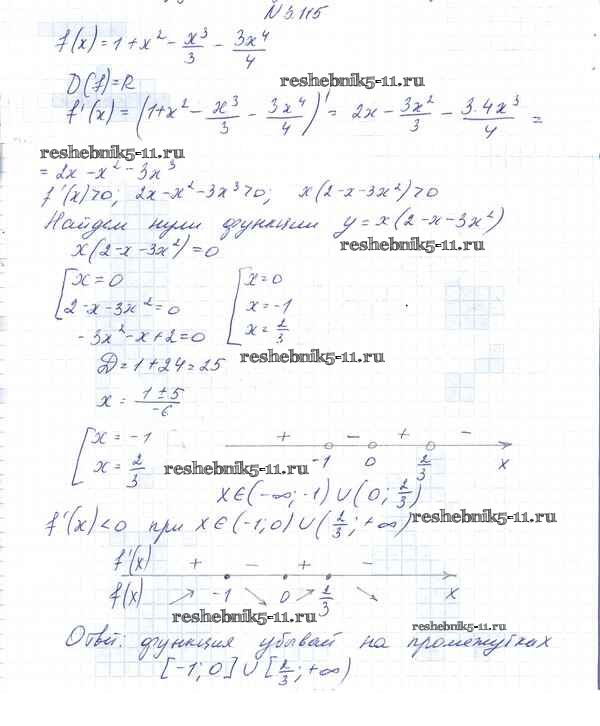 N 5.115
f(x) = 1 + x² - x³/3 - 3x⁴/4
reshebnik5-11.ru
D(f) = R
f'(x) = (1+x² - x³/3 - 3x⁴/4)' = 2x - 3x²/3 - 3·4x³/4 =
reshebnik5-11.ru
= 2x - x² - 3x³
f'(x)>0; 2x-x²-3x³>0; x(2-x-3x²)>0
Найдем нули функции y = x(2-x-3x²)
x(2-x-3x²)=0 reshebnik5-11.ru
[x=0 [x=0
2-x-3x²=0 x=-1
-3x²-x+2=0 x=2/3
Д=1+24=25 reshebnik5-11.ru
x = 1±5/-6
[x=-1 + - + -
x=2/3 -1 0 2/3 x
reshebnik5-11.ru
x∈(-∞;-1)∪(0;2/3)
f'(x)<0 при x∈(-1;0)∪(2/3;+∞) reshebnik5-11.ru
f'(x) + - + -
f(x) ↗ -1 ↘ 0 ↗ 2/3 ↘ x
reshebnik5-11.ru
reshebnik5-11.ru
Ответ: функция убывай на промежутках
[-1;0]∪[2/3;+∞)